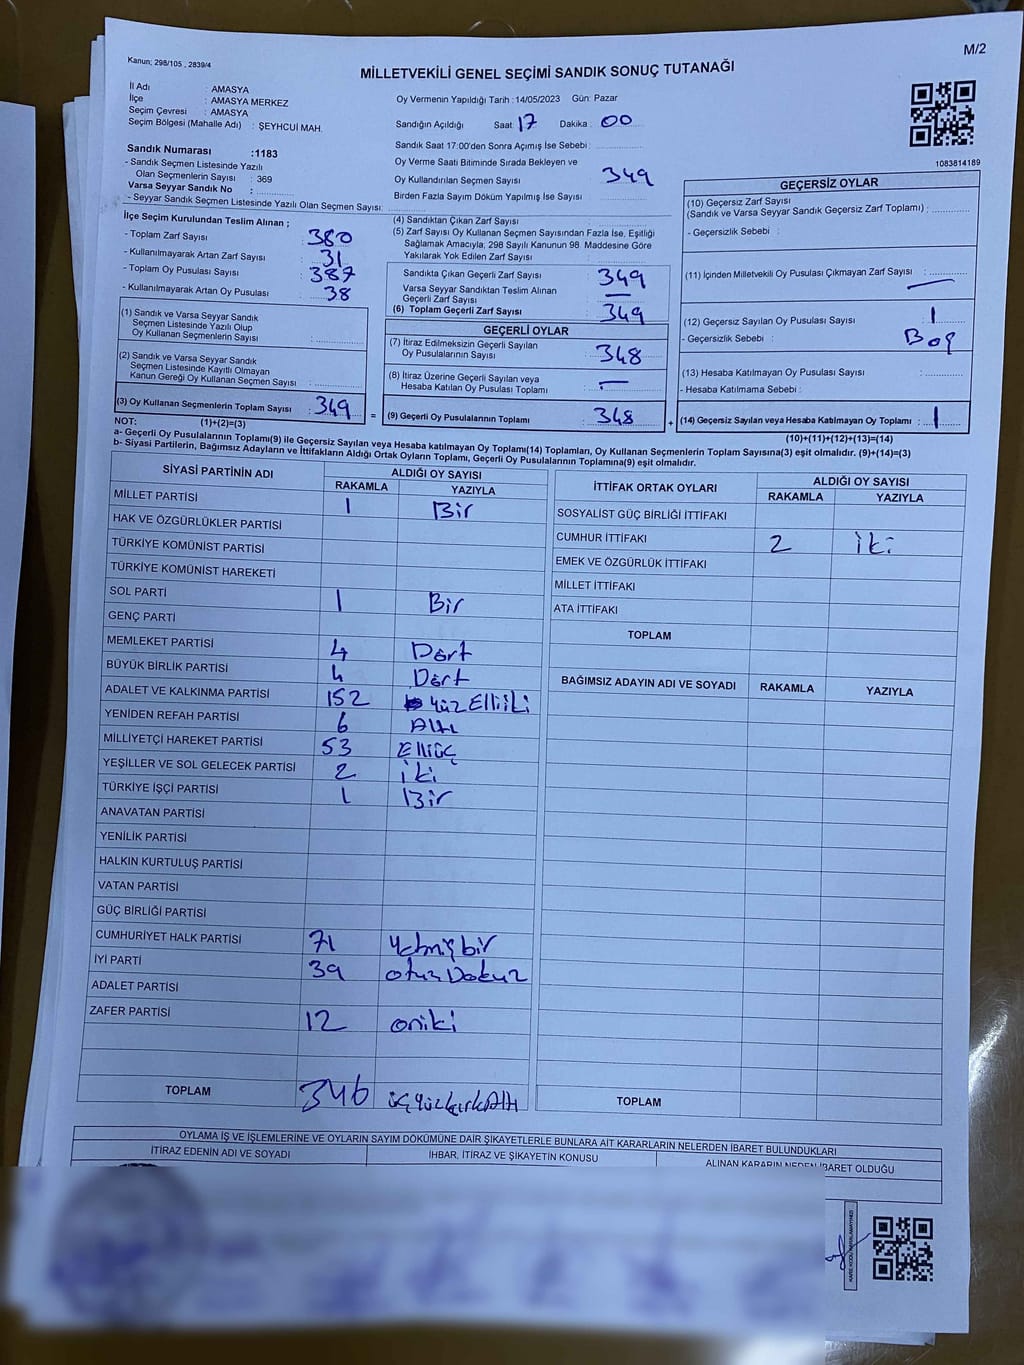 M/2
Kanun; 298/105 , 2839/4
MİLLETVEKİLİ GENEL SEÇİMİ SANDIK SONUÇ TUTANAĞI
İl Adı : AMASYA
İlçe : AMASYA MERKEZ
Seçim Çevresi : AMASYA
Seçim Bölgesi (Mahalle Adı) : ŞEYHCUİ MAH.
Sandık Numarası :1183
- Sandık Seçmen Listesinde Yazılı
Olan Seçmenlerin Sayısı : 369
Varsa Seyyar Sandık No :
- Seyyar Sandık Seçmen Listesinde Yazılı Olan Seçmen Sayısı:
Oy Vermenin Yapıldığı Tarih : 14/05/2023 Gün: Pazar
Sandığın Açıldığı Saat 17 Dakika : 00
Sandık Saat 17:00'den Sonra Açımış İse Sebebi :
Oy Verme Saati Bitiminde Sırada Bekleyen ve
Oy Kullandırılan Seçmen Sayısı 349
Birden Fazla Sayım Döküm Yapılmış İse Sayısı :
1083814189
İlçe Seçim Kurulundan Teslim Alınan ;
- Toplam Zarf Sayısı : 380
- Kullanılmayarak Artan Zarf Sayısı : 31
- Toplam Oy Pusulası Sayısı : 387
- Kullanılmayarak Artan Oy Pusulası : 38
(1) Sandık ve Varsa Seyyar Sandık
Seçmen Listesinde Yazılı Olup
Oy Kullanan Seçmenlerin Sayısı :
(2) Sandık ve Varsa Seyyar Sandık
Seçmen Listesinde Kayıtlı Olmayan
Kanun Gereği Oy Kullanan Seçmen Sayısı :
(3) Oy Kullanan Seçmenlerin Toplam Sayısı : 349
(1)+(2)=(3)
(4) Sandıktan Çıkan Zarf Sayısı :
(5) Zarf Sayısı Oy Kullanan Seçmen Sayısından Fazla İse, Eşitliği
Sağlamak Amacıyla, 298 Sayılı Kanunun 98. Maddesine Göre
Yakılarak Yok Edilen Zarf Sayısı :
Sandıkta Çıkan Geçerli Zarf Sayısı : 349
Varsa Seyyar Sandıktan Teslim Alınan
Geçerli Zarf Sayısı : —
(6) Toplam Geçerli Zarf Sayısı : 349
GEÇERLİ OYLAR
(7) İtiraz Edilmeksizin Geçerli Sayılan
Oy Pusulalarının Sayısı : 348
(8) İtiraz Üzerine Geçerli Sayılan veya
Hesaba Katılan Oy Pusulası Toplamı : —
= (9) Geçerli Oy Pusulalarının Toplamı : 348 +
GEÇERSİZ OYLAR
(10) Geçersiz Zarf Sayısı
(Sandık ve Varsa Seyyar Sandık Geçersiz Zarf Toplamı) :
- Geçersizlik Sebebi :
(11) İçinden Milletvekili Oy Pusulası Çıkmayan Zarf Sayısı : —
(12) Geçersiz Sayılan Oy Pusulası Sayısı : 1
- Geçersizlik Sebebi : Boş
(13) Hesaba Katılmayan Oy Pusulası Sayısı :
- Hesaba Katılmama Sebebi :
(14) Geçersiz Sayılan veya Hesaba Katılmayan Oy Toplamı : 1
(10)+(11)+(12)+(13)=(14)
NOT:
a- Geçerli Oy Pusulalarının Toplamı(9) ile Geçersiz Sayılan veya Hesaba katılmayan Oy Toplamı(14) Toplamları, Oy Kullanan Seçmenlerin Toplam Sayısına(3) eşit olmalıdır. (9)+(14)=(3)
b- Siyasi Partilerin, Bağımsız Adayların ve İttifakların Aldığı Ortak Oyların Toplamı, Geçerli Oy Pusulalarının Toplamına(9) eşit olmalıdır.
SİYASİ PARTİNİN ADI ALDIĞI OY SAYISI
RAKAMLA YAZIYLA
MİLLET PARTİSİ 1 Bir
HAK VE ÖZGÜRLÜKLER PARTİSİ
TÜRKİYE KOMÜNİST PARTİSİ
TÜRKİYE KOMÜNİST HAREKETİ
SOL PARTİ 1 Bir
GENÇ PARTİ
MEMLEKET PARTİSİ 4 Dört
BÜYÜK BİRLİK PARTİSİ 4 Dört
ADALET VE KALKINMA PARTİSİ 152 yüz Elliiki
YENİDEN REFAH PARTİSİ 6 Altı
MİLLİYETÇİ HAREKET PARTİSİ 53 Elliüç
YEŞİLLER VE SOL GELECEK PARTİSİ 2 iki
TÜRKİYE İŞÇİ PARTİSİ 1 Bir
ANAVATAN PARTİSİ
YENİLİK PARTİSİ
HALKIN KURTULUŞ PARTİSİ
VATAN PARTİSİ
GÜÇ BİRLİĞİ PARTİSİ
CUMHURİYET HALK PARTİSİ 71 yetmiş bir
İYİ PARTİ 39 otuz Dokuz
ADALET PARTİSİ
ZAFER PARTİSİ 12 oniki
TOPLAM 346 üçyüzkırkAltı
İTTİFAK ORTAK OYLARI ALDIĞI OY SAYISI
RAKAMLA YAZIYLA
SOSYALİST GÜÇ BİRLİĞİ İTTİFAKI
CUMHUR İTTİFAKI 2 iki
EMEK VE ÖZGÜRLÜK İTTİFAKI
MİLLET İTTİFAKI
ATA İTTİFAKI
TOPLAM
BAĞIMSIZ ADAYIN ADI VE SOYADI RAKAMLA YAZIYLA
TOPLAM
OYLAMA İŞ VE İŞLEMLERİNE VE OYLARIN SAYIM DÖKÜMÜNE DAİR ŞİKAYETLERLE BUNLARA AİT KARARLARIN NELERDEN İBARET BULUNDUKLARI
İTİRAZ EDENİN ADI VE SOYADI İHBAR, İTİRAZ VE ŞİKAYETİN KONUSU ALINAN KARARIN NEDEN İBARET OLDUĞU